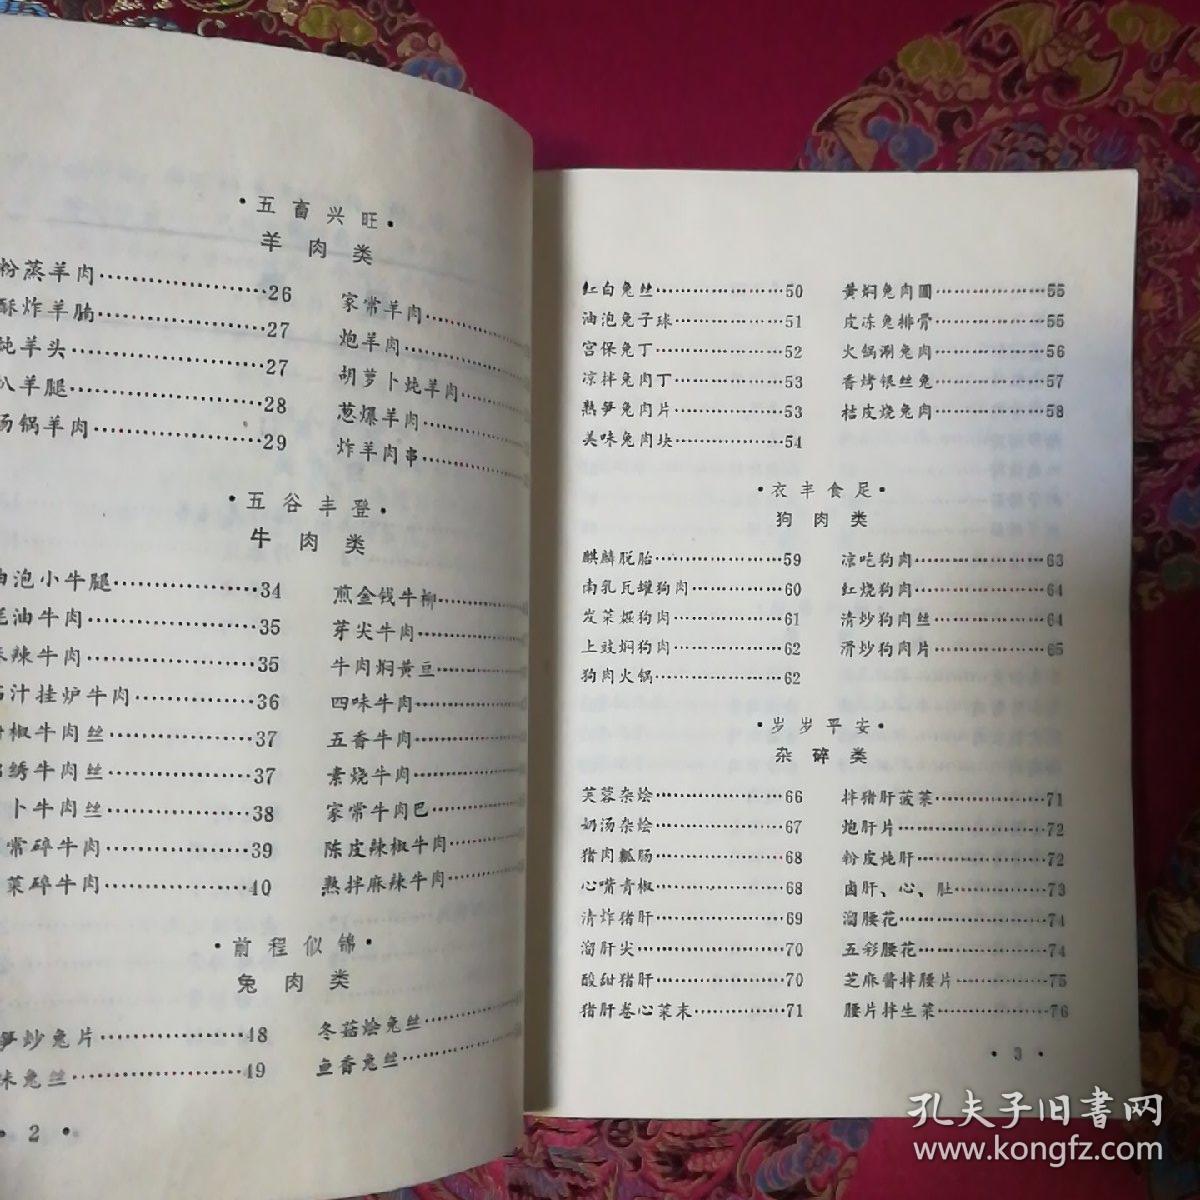 ·五畜兴旺·
羊肉类
粉蒸羊肉……………26
酥炸羊腩……………27
炖羊头……………27
扒羊腿……………28
汤锅羊肉……………29
家常羊肉……………
炮羊肉……………
胡萝卜炖羊肉……………
葱爆羊肉……………
炸羊肉串……………
·五谷丰登·
牛肉类
油泡小牛腿……………34
蚝油牛肉……………35
麻辣牛肉……………35
汁挂炉牛肉……………36
椒牛肉丝……………37
绣牛肉丝……………37
卜牛肉丝……………38
常碎牛肉……………39
菜碎牛肉……………40
煎金钱牛柳……………
芽尖牛肉……………
牛肉焖黄豆……………
四味牛肉……………
五香牛肉……………
素烧牛肉……………
家常牛肉巴……………
陈皮辣椒牛肉……………
熟拌麻辣牛肉……………
·前程似锦·
兔肉类
笋炒兔片……………48
味兔丝……………49
冬菇烩兔丝……………
鱼香兔丝……………
·2·
红白兔丝……………50
油泡兔子球……………51
宫保兔丁……………52
凉拌兔肉丁……………53
熟笋兔肉片……………53
美味兔肉块……………54
黄焖兔肉圆……………55
皮冻兔排骨……………55
火锅涮兔肉……………56
香烤银丝兔……………57
桔皮烧兔肉……………58
·衣丰食足·
狗肉类
麒麟脱胎……………59
南乳瓦罐狗肉……………60
发菜煀狗肉……………61
上豉焖狗肉……………62
狗肉火锅……………62
凉吃狗肉……………63
红烧狗肉……………64
清炒狗肉丝……………64
滑炒狗肉片……………65
·岁岁平安·
杂碎类
芙蓉杂烩……………66
奶汤杂烩……………67
猪肉瓤肠……………68
心嘴青椒……………68
清炸猪肝……………69
溜肝尖……………70
酸甜猪肝……………70
猪肝卷心菜末……………71
拌猪肝菠菜……………71
炮肝片……………72
粉皮炖肝……………72
卤肝、心、肚……………73
溜腰花……………74
五彩腰花……………74
芝麻酱拌腰片……………75
腰片拌生菜……………76
·3·
孔夫子旧书网
www.kongfz.com